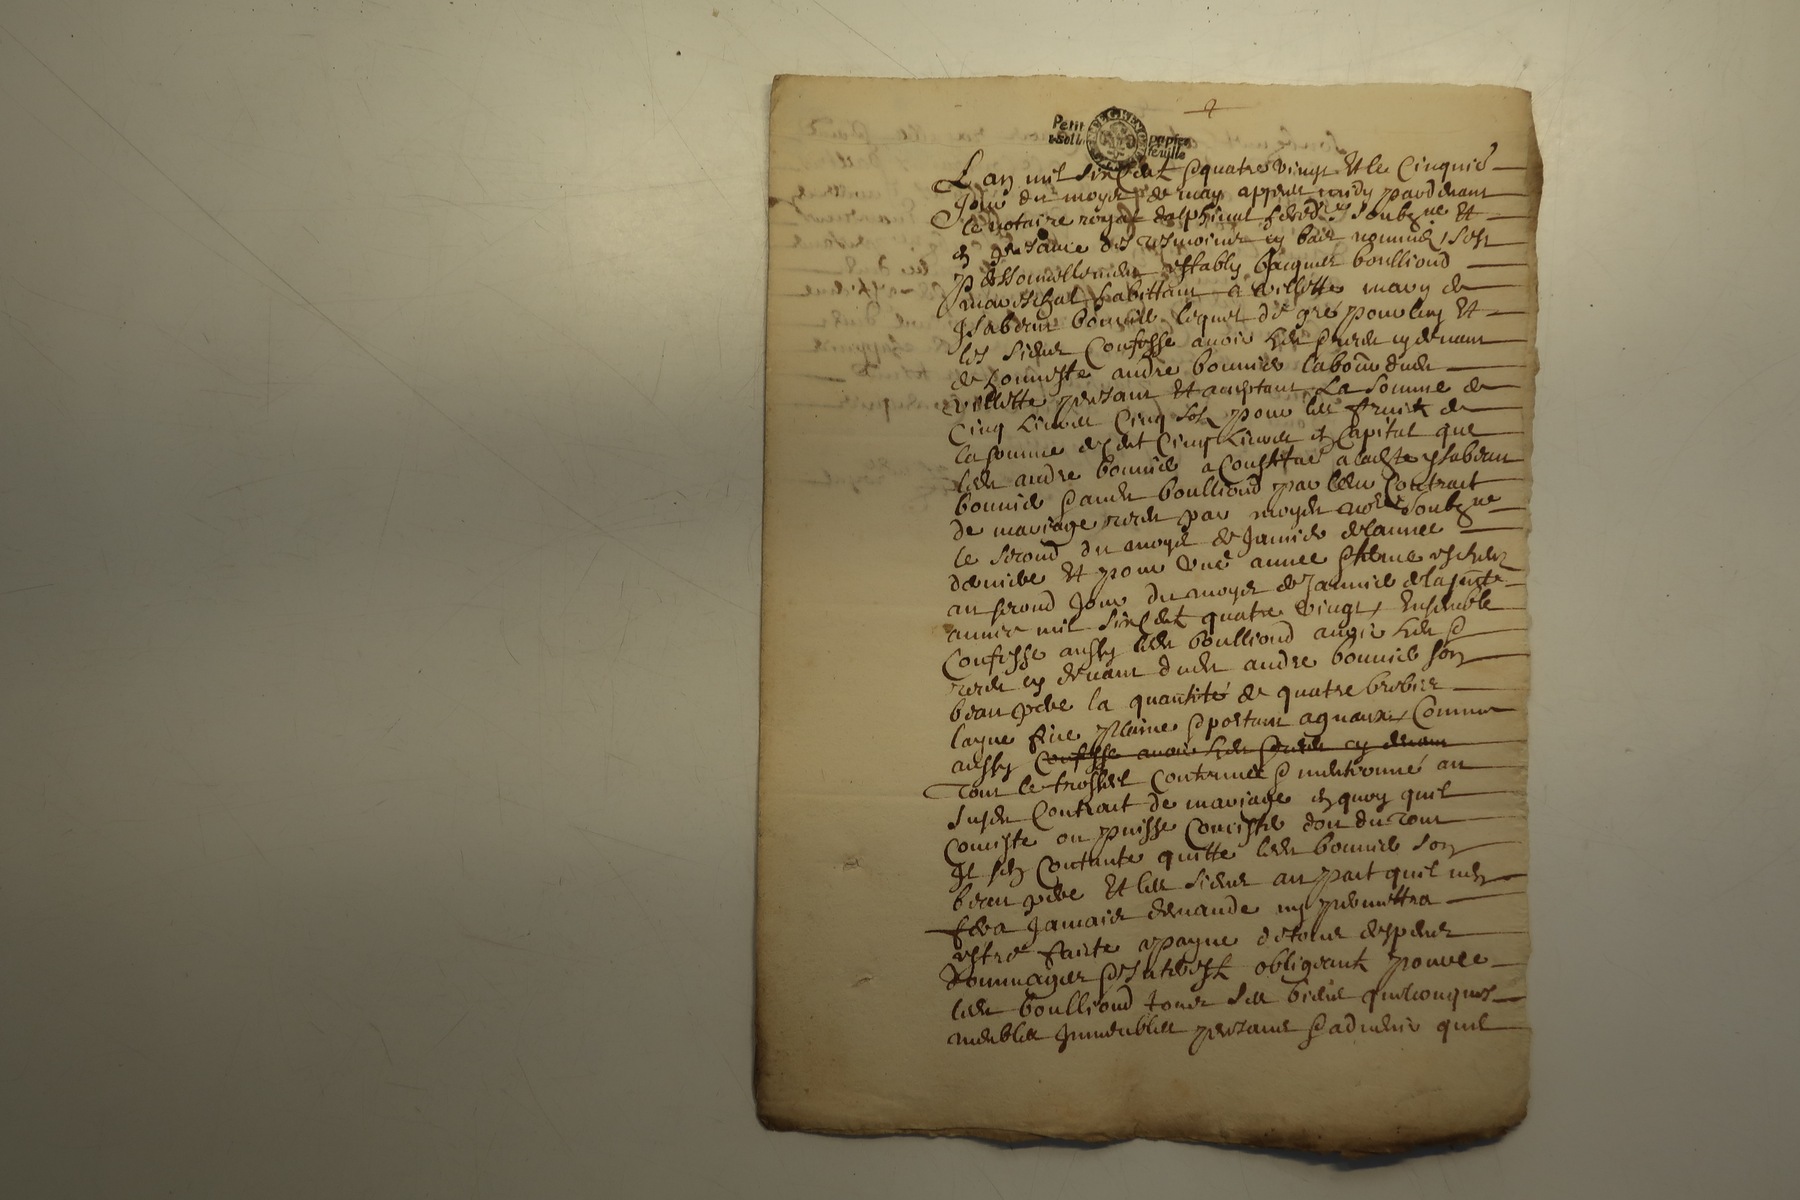 Petit papier
1 sol la feuille
L'an mil six cent & quatre vingt et le cinquie
jour du moys de may apprès midy pardevant
le notaire royal dalphinal hered.re soubz.ne et
en presance des tesmoins en bas nommés s'est
personnellement estably Jacques boulliond
mareschal habittant a villette mary de
Ysabeau bonnier lequel de gré pour luy et
les siens confesse avoir heu & receu cy devant
de honneste andré bonnier laboureur dudit
villette presant et acceptant la somme de
cinq livres cinq sols pour les fruits de
la somme de cent cinq livres en capital que
ledit andré bonnier a constitué a ladite ysabeau
bonnier & audit boulliond par leur contrait
de mariage receu par moydit no.re soubz.ne
le second du moys de janvier de l'année
derniere et pour une année & terme escheu
au second jour du moys de janvier de la pnte
année mil six cent quatre vingt, ensemble
confesse aussy ledit boulliond avoir heu &
receu cy devant dudit andré bonnier son
beau pere la quantité de quatre brebis
layne fine plaine & portant agneaux, comme
aussy confesse avoir heu & receu cy devant
tout le trossel contenu & mentionné au
susdit contrait de mariage en quoy quil
conciste ou puisse concister dont du tout
il s'en contante quitte ledit bonnier son
beau pere et les siens au pact quil n'en
fera jamais demande ny permettra
estre faite a payne de tous despens
dommages & interest obligeant pour ce
ledit boulliond tous ses biens quelconques
meubles immeubles presans & advenir quil